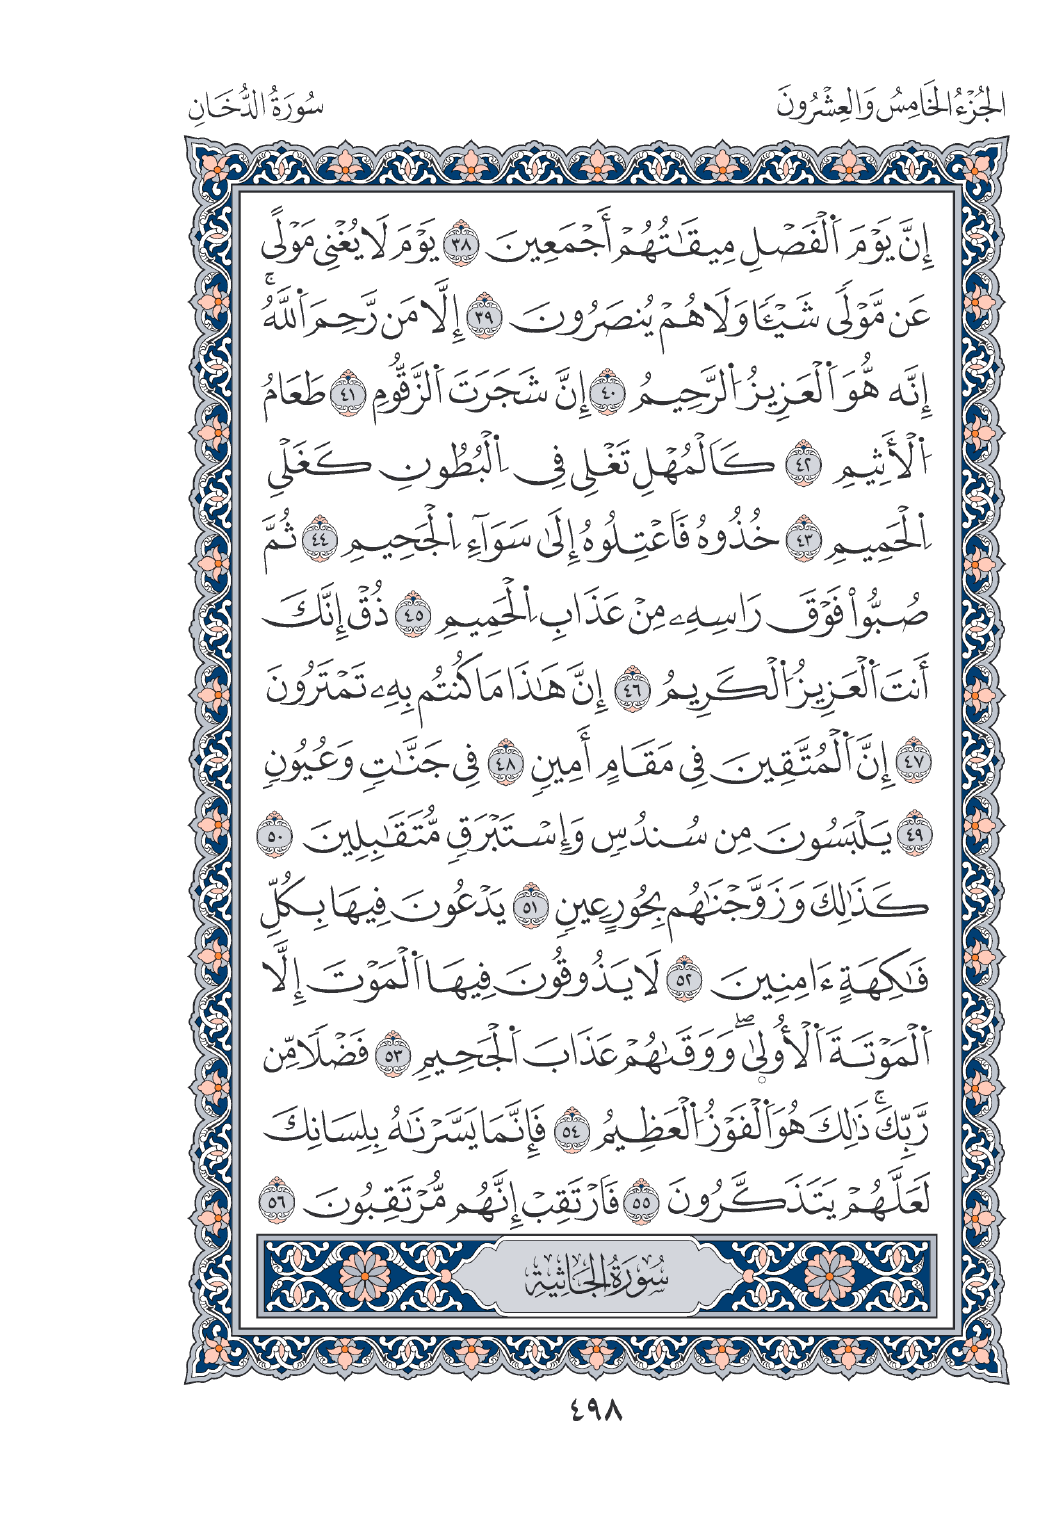 الجُزْءُ الخَامِسُ وَالعِشْرُونَ
سُورَةُ الدُّخَانِ
إِنَّ يَوْمَ اَ۬لْفَصْلِ مِيقَٰتُهُمْ أَجْمَعِينَ ٣٨ يَوْمَ لَا يُغْنِے مَوْليً
عَن مَّوْليٗ شَيْـٔاٗ وَلَا هُمْ يُنصَرُونَ ٣٩ إِلَّا مَن رَّحِمَ اَ۬للَّهُۚ
إِنَّه هُّوَ اَ۬لْعَزِيزُ اُ۬لرَّحِيمُ ٤٠ إِنَّ شَجَرَتَ اَ۬لزَّقُّومِ ٤١ طَعَامُ
اُ۬لْأَثِيمِ ٤٢ كَالْمُهْلِ تَغْلِے فِے اِ۬لْبُطُونِ كَغَلْيِ
اِ۬لْحَمِيمِ ٤٣ خُذُوهُ فَاعْتِلُوهُ إِلَىٰ سَوَآءِ اِ۬لْجَحِيمِ ٤٤ ثُمَّ
صُبُّواْ فَوْقَ رَاسِهِۦ مِنْ عَذَابِ اِ۬لْحَمِيمِ ٤٥ ذُقْ إِنَّكَ
أَنتَ اَ۬لْعَزِيزُ اُ۬لْكَرِيمُ ٤٦ إِنَّ هَٰذَا مَا كُنتُم بِهِۦ تَمْتَرُونَ
٤٧ إِنَّ اَ۬لْمُتَّقِينَ فِے مَقَامٍ أَمِينٖ ٤٨ فِے جَنَّٰتٖ وَعُيُونٖ
٤٩ يَلْبَسُونَ مِن سُندُسٖ وَإِسْتَبْرَقٖ مُّتَقَٰبِلِينَ ٥٠
كَذَٰلِكَ وَزَوَّجْنَٰهُم بِحُورٍ عِينٖ ٥١ يَدْعُونَ فِيهَا بِكُلِّ
فَٰكِهَةٍ ءَامِنِينَ ٥٢ لَا يَذُوقُونَ فِيهَا اَ۬لْمَوْتَ إِلَّا
اَ۬لْمَوْتَةَ اَ۬لْأُولۭىٰۖ وَوَقَىٰهُمْ عَذَابَ اَ۬لْجَحِيمِ ٥٣ فَضْلاٗ مِّن
رَّبِّكَۚ ذَٰلِكَ هُوَ اَ۬لْفَوْزُ اُ۬لْعَظِيمُ ٥٤ فَإِنَّمَا يَسَّرْنَٰهُ بِلِسَانِكَ
لَعَلَّهُمْ يَتَذَكَّرُونَ ٥٥ فَارْتَقِبْ إِنَّهُم مُّرْتَقِبُونَ ٥٦
سُورَةُ الجَاثِيَةِ
٤٩٨